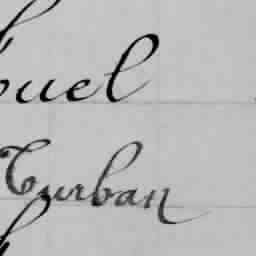 uel
Turban